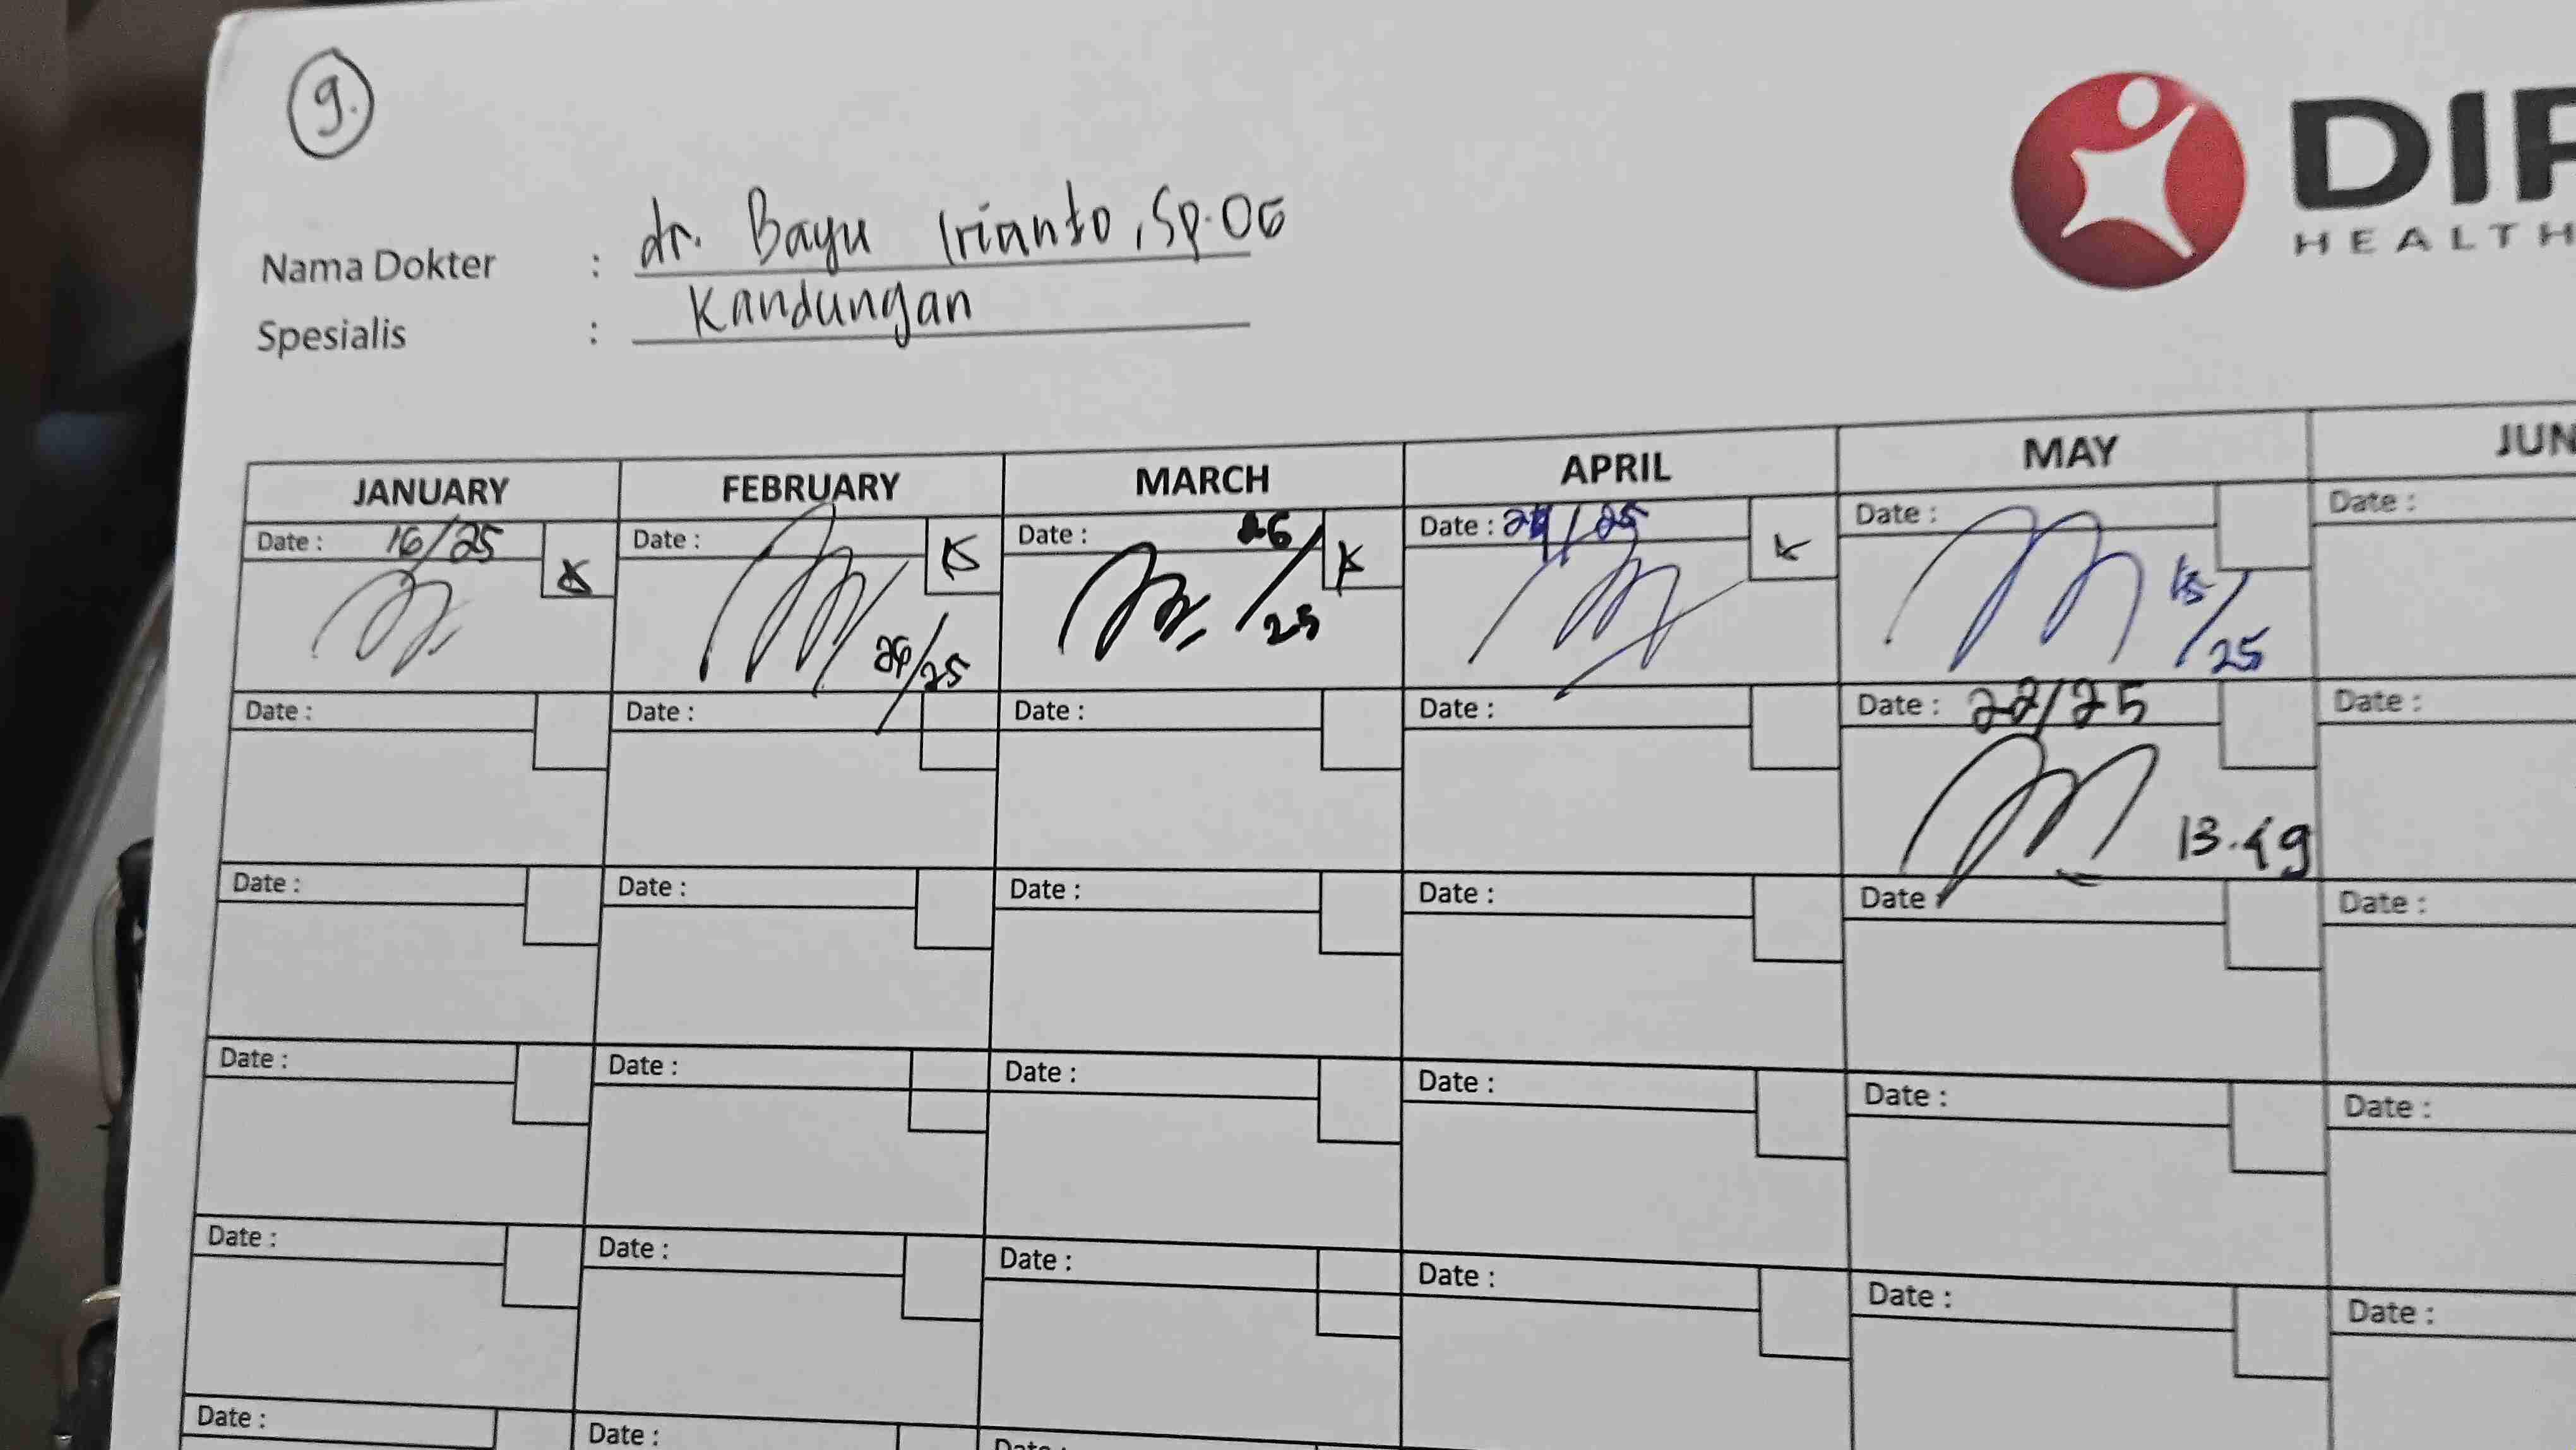 9.
DIF
HEALTH
Nama Dokter : dr. Bayu Irianto, Sp.OG
Spesialis : Kandungan
JANUARY FEBRUARY MARCH APRIL MAY JUN
Date : 16/25 K Date : K Date : 26/25 K Date : /25 K Date : Date :
26/25 15/25
Date : Date : Date : Date : Date : 22/25 Date :
13.49
Date : Date : Date : Date : Date Date :
Date : Date : Date : Date : Date : Date :
Date : Date : Date : Date : Date : Date :
Date : Date : Date :